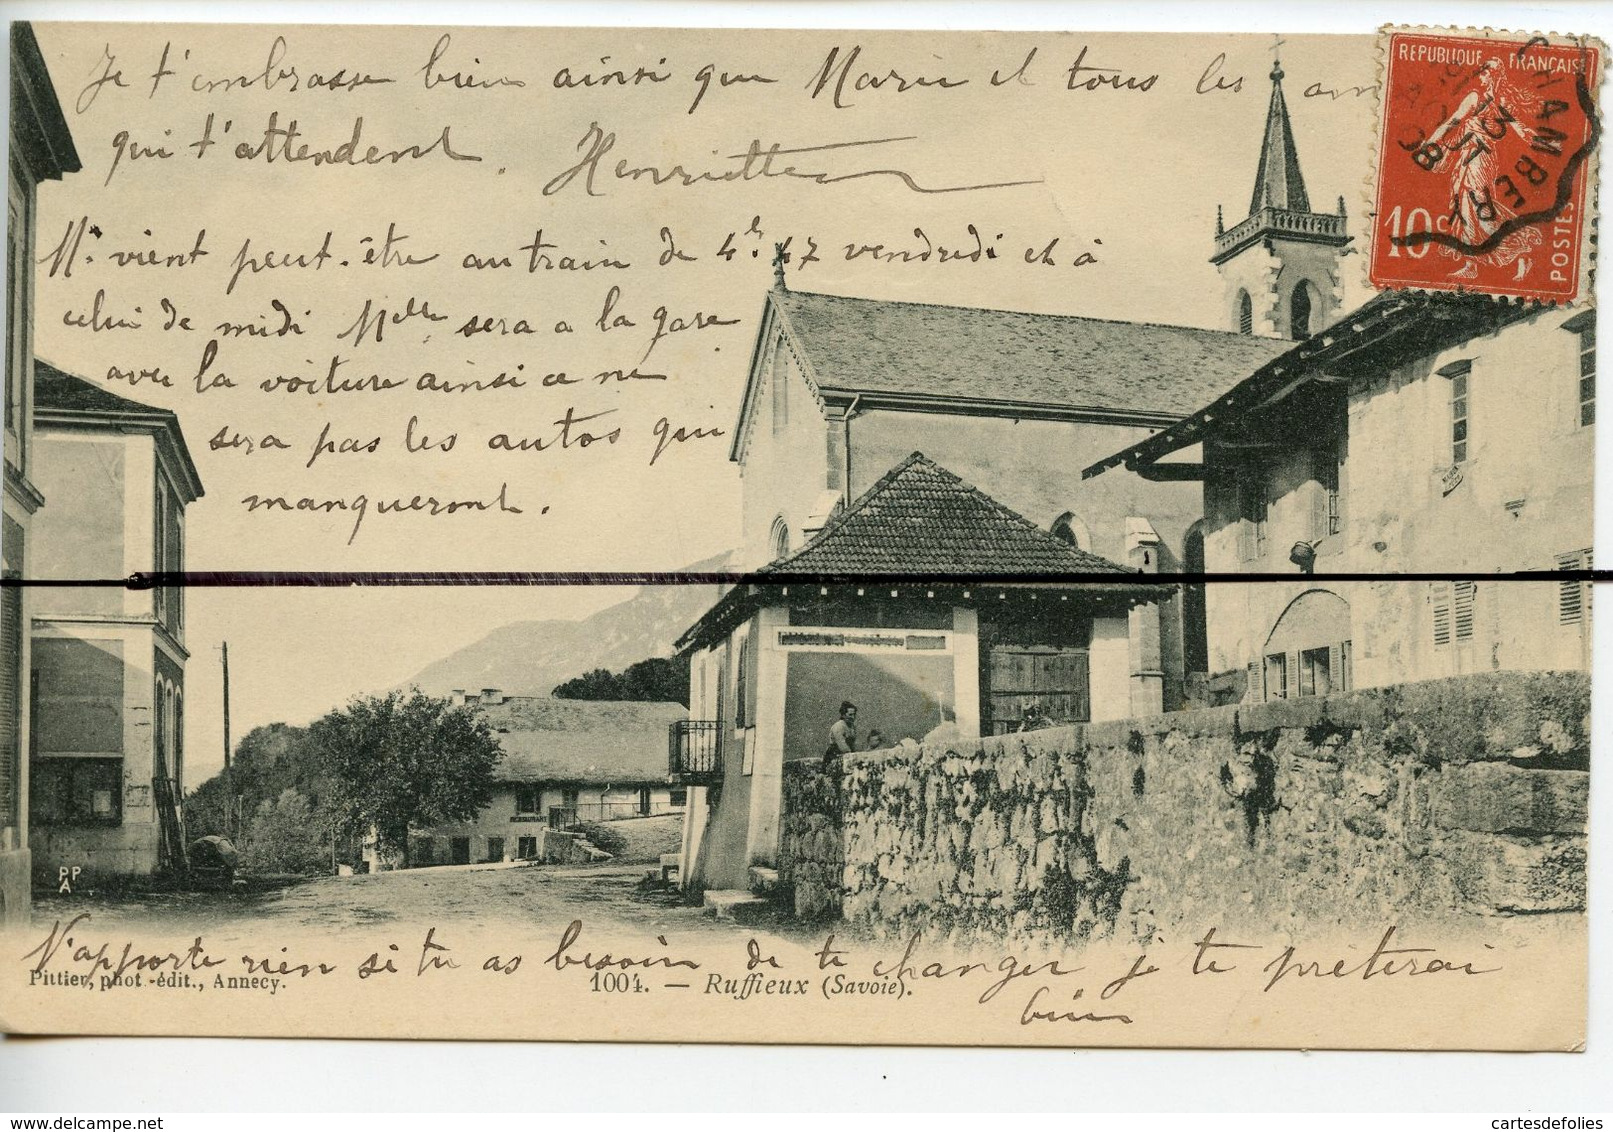 Je t'embrasse bien ainsi que Marie et tous les am
qui t'attendent. Henriette
Mr vient peut-être au train de 4h 47 vendredi et à
celui de midi Melle sera a la gare
avec la voiture ainsi ce ne
sera pas les autos qui
manqueront.
REPUBLIQUE FRANÇAISE
10c
POSTES
CHAMBERY
13
08
RESTAURANT
PPA
N'apporte rien si tu as besoin de te changer je te prêterai
bien
Pittier, phot.-édit., Annecy.
1004. — Ruffieux (Savoie).
cartesdefolies